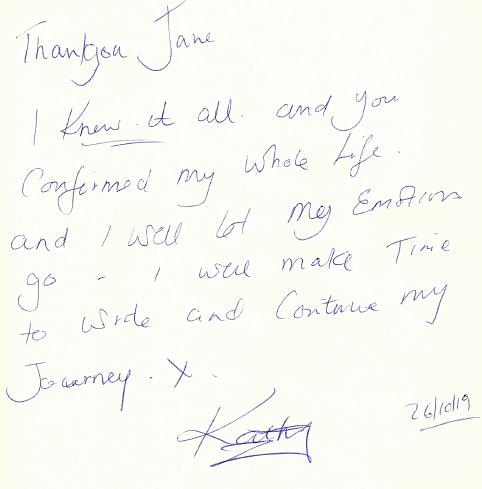 Thankyou Jane
I Knew it all. and you
Confirmed my Whole Life.
and I will let my Emotions
go - I will make Time
to write and Continue my
Journey. X.
Kathy
26/10/19